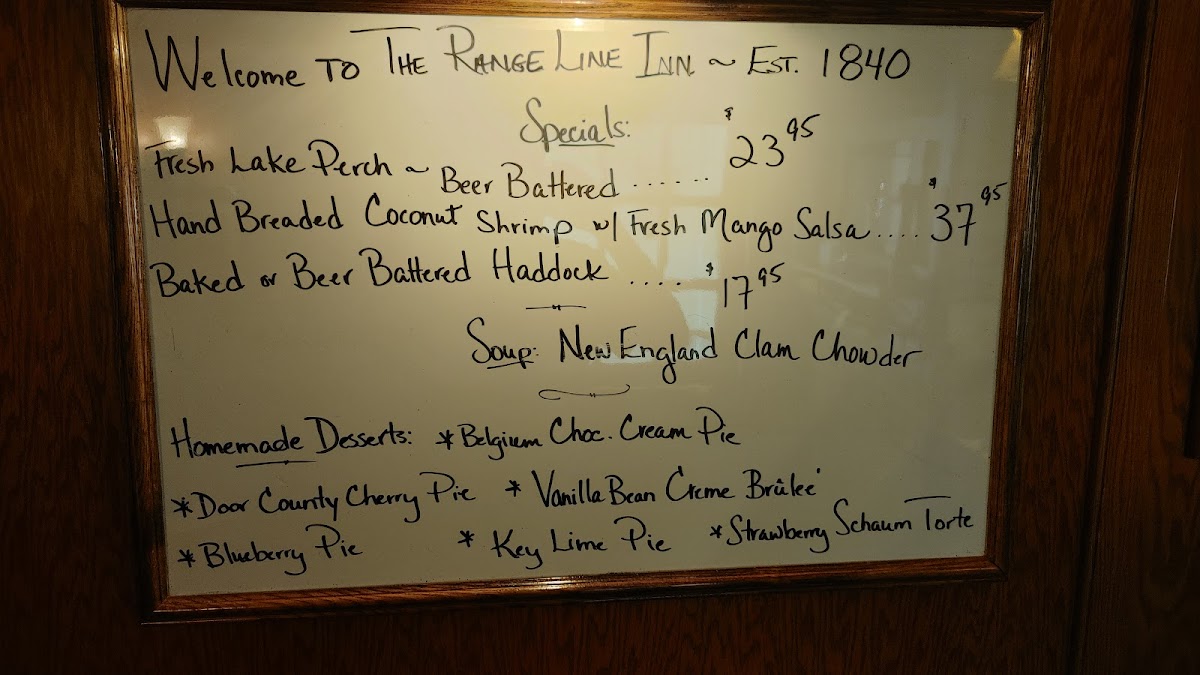 Welcome TO THE RANGE LINE INN ~ EST. 1840
Specials:
Fresh Lake Perch ~ Beer Battered ...... $23 95
Hand Breaded Coconut Shrimp w/ Fresh Mango Salsa .... $37 95
Baked or Beer Battered Haddock .... $17 95
Soup: New England Clam Chowder
Homemade Desserts: *Belgium Choc. Cream Pie
*Door County Cherry Pie * Vanilla Bean Creme Brûleé
*Blueberry Pie * Key Lime Pie *Strawberry Schaum Torte